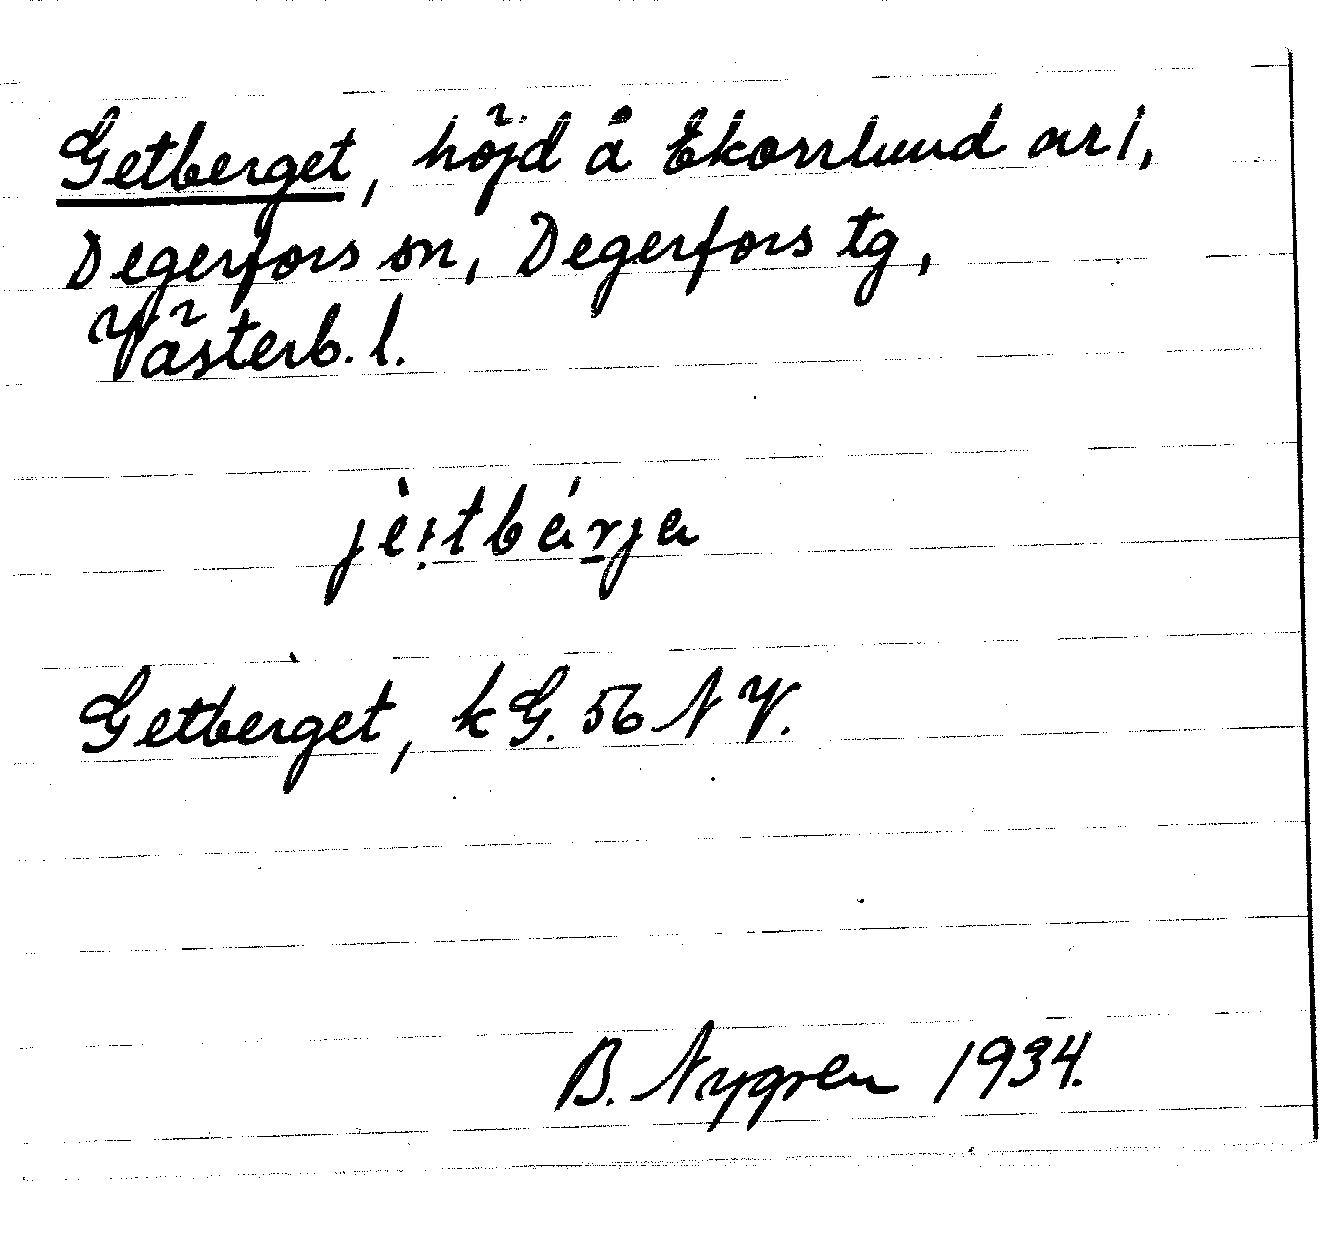 Getberget, höjd å Ekorrlund ar 1,
Degerfors sn, Degerfors tg,
Västerb. l.
jèıtbárja
Getberget, kG. 56 NV.
B. Nygren 1934.